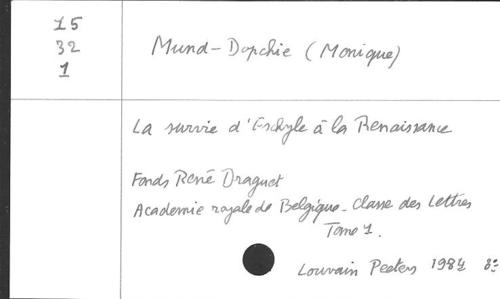 15
32
1
Mund-Dopchie (Monique)
La survie d'Eschyle à la Renaissance
Fonds René Draguet
Academie royale de Belgique - Classe des Lettres
Tome 1.
Louvain Peeters 1984 8°